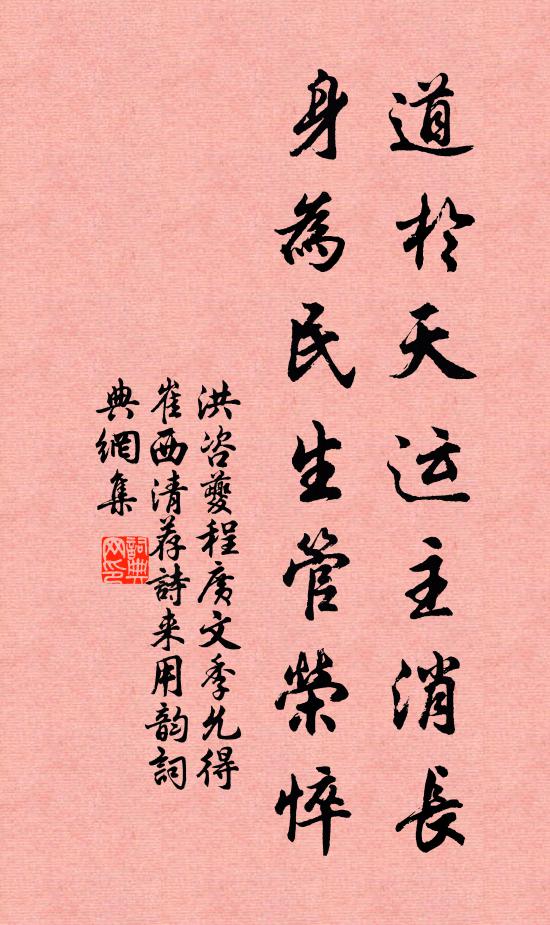 道於天运主消長
身為民生管榮悴
洪咨夔程廣文季允得
崔西清荐詩来用韵詞
典網集
詞典网印